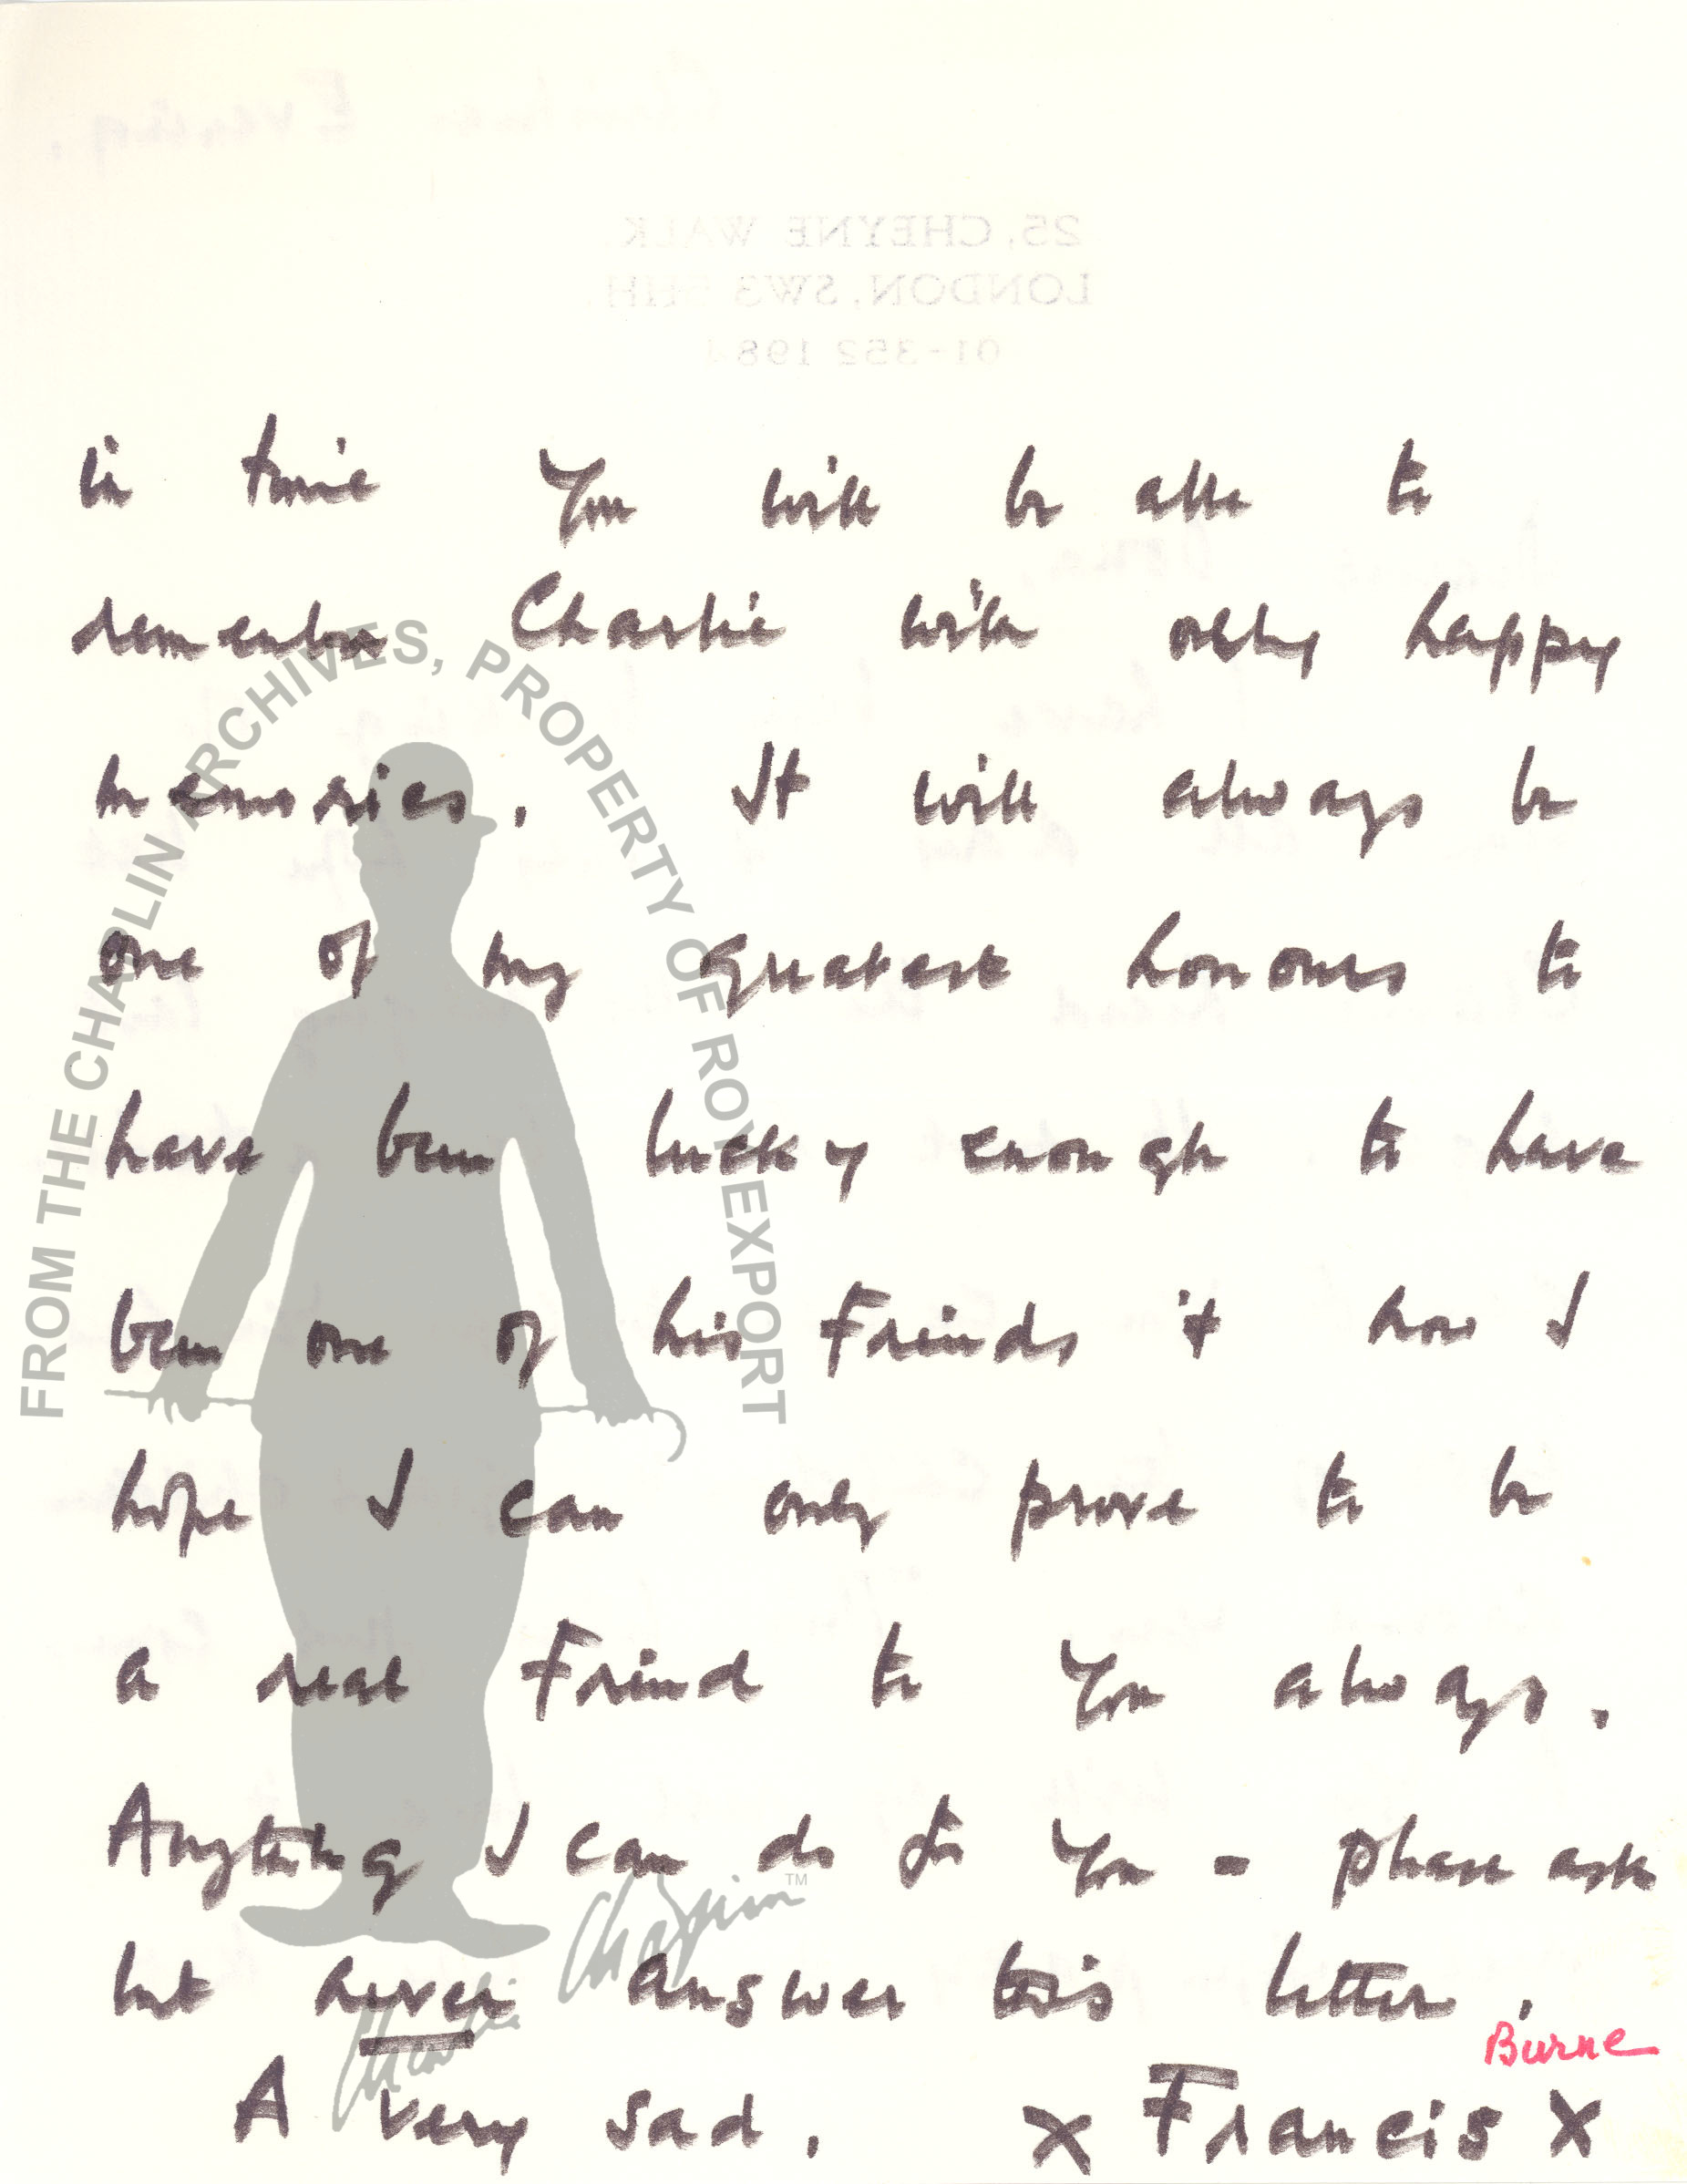 Evening.
25, CHEYNE WALK
LONDON, SW3
01-352 198
in time You will be able to
remember Charlie with only happy
memories. It will always be
one of my greatest honours to
have been lucky enough to have
been one of his Friends & how I
hope I can only prove to be
a real Friend to You always.
Anything I can do for You - please ask
but never answer this letter.
Burne
A very sad, x Francis x
FROM THE CHAPLIN ARCHIVES, PROPERTY OF ROY EXPORT
Charlie Chaplin TM